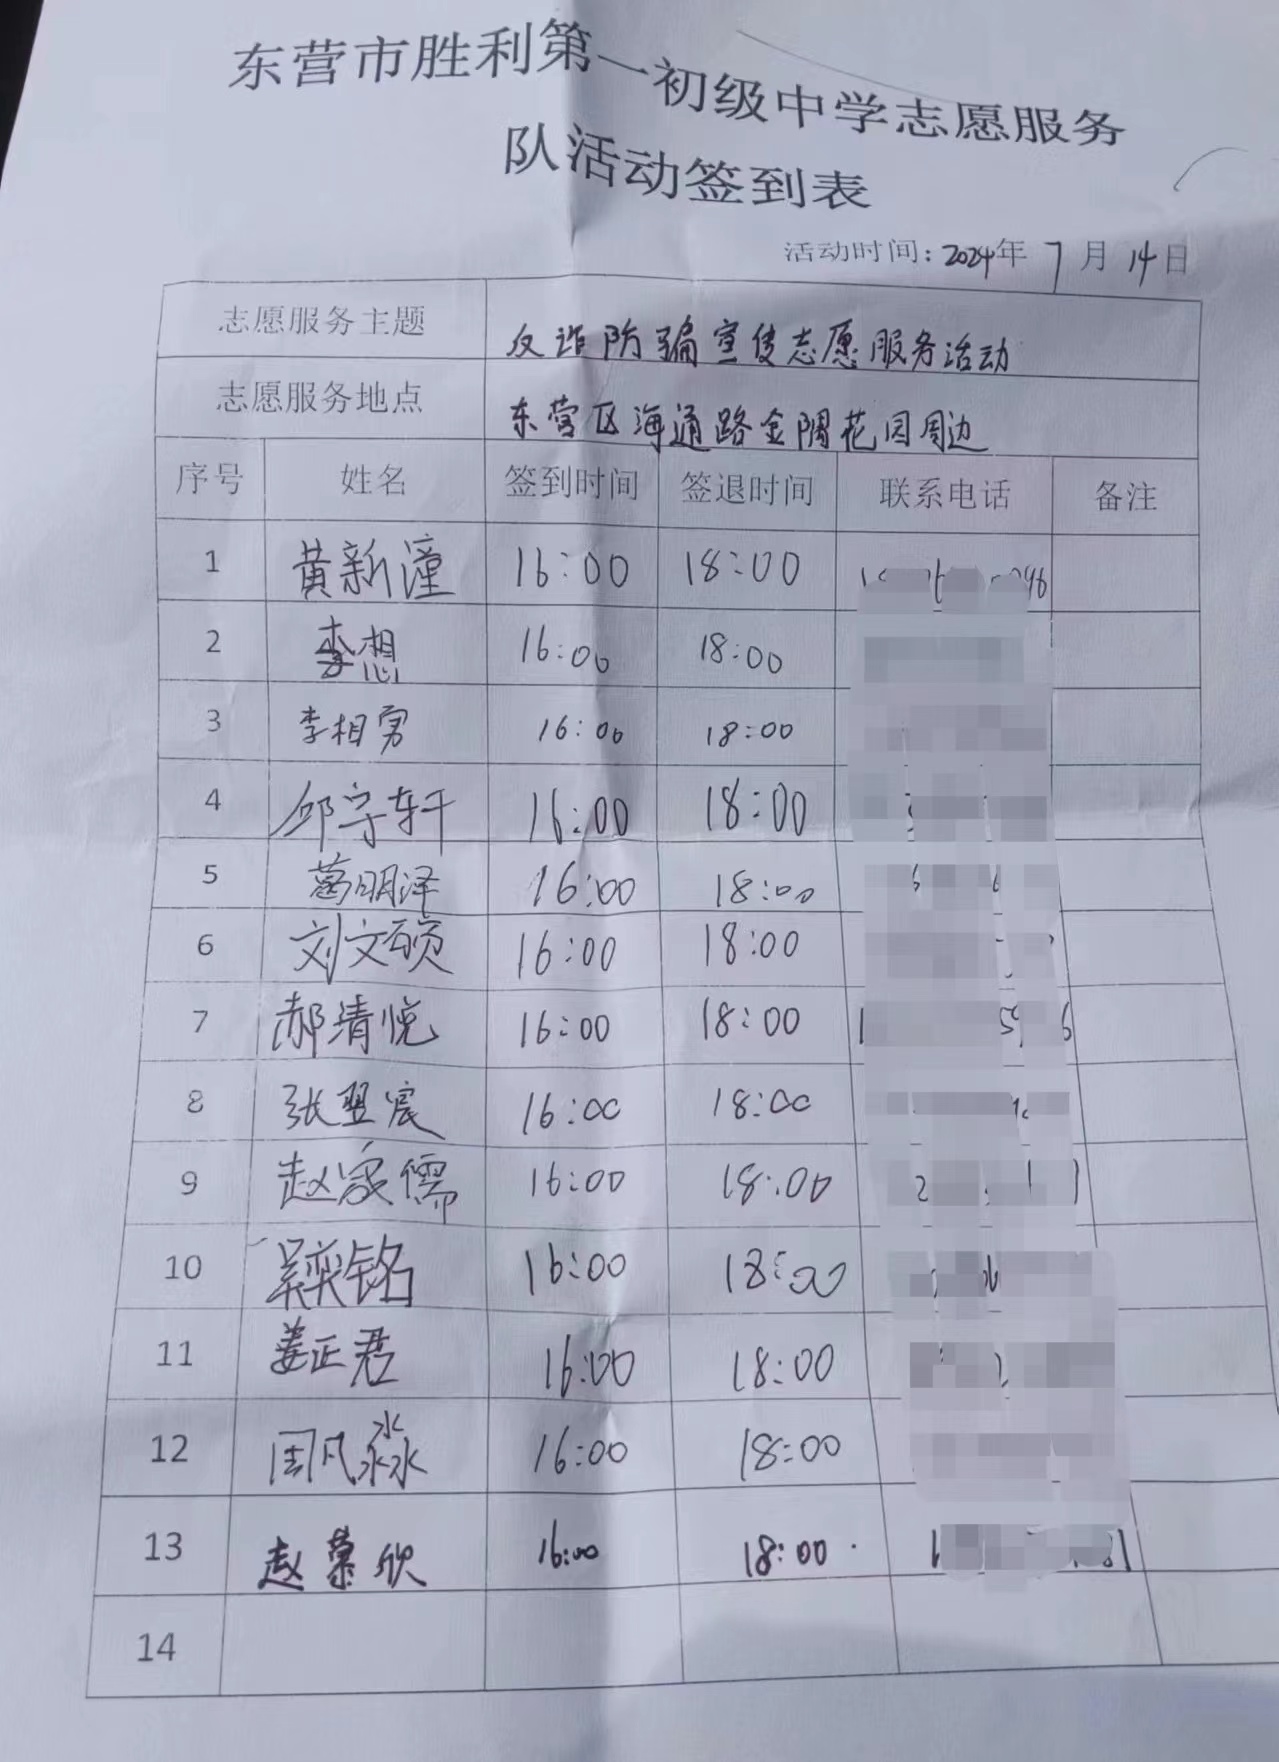 东营市胜利第一初级中学志愿服务
队活动签到表
活动时间：2024年 7月 14日
志愿服务主题 反诈防骗宣传志愿服务活动
志愿服务地点 东营区海通路金隅花园周边
序号 姓名 签到时间 签退时间 联系电话 备注
1 黄新潼 16:00 18:00
2 李想 16:00 18:00
3 李相男 16:00 18:00
4 邱宇轩 16:00 18:00
5 葛明泽 16:00 18:00
6 刘文硕 16:00 18:00
7 郝清悦 16:00 18:00
8 张翌宸 16:00 18:00
9 赵家儒 16:00 18:00
10 吴奕铭 16:00 18:00
11 姜正君 16:00 18:00
12 周凡淼 16:00 18:00
13 赵慕欣 16:00 18:00
14